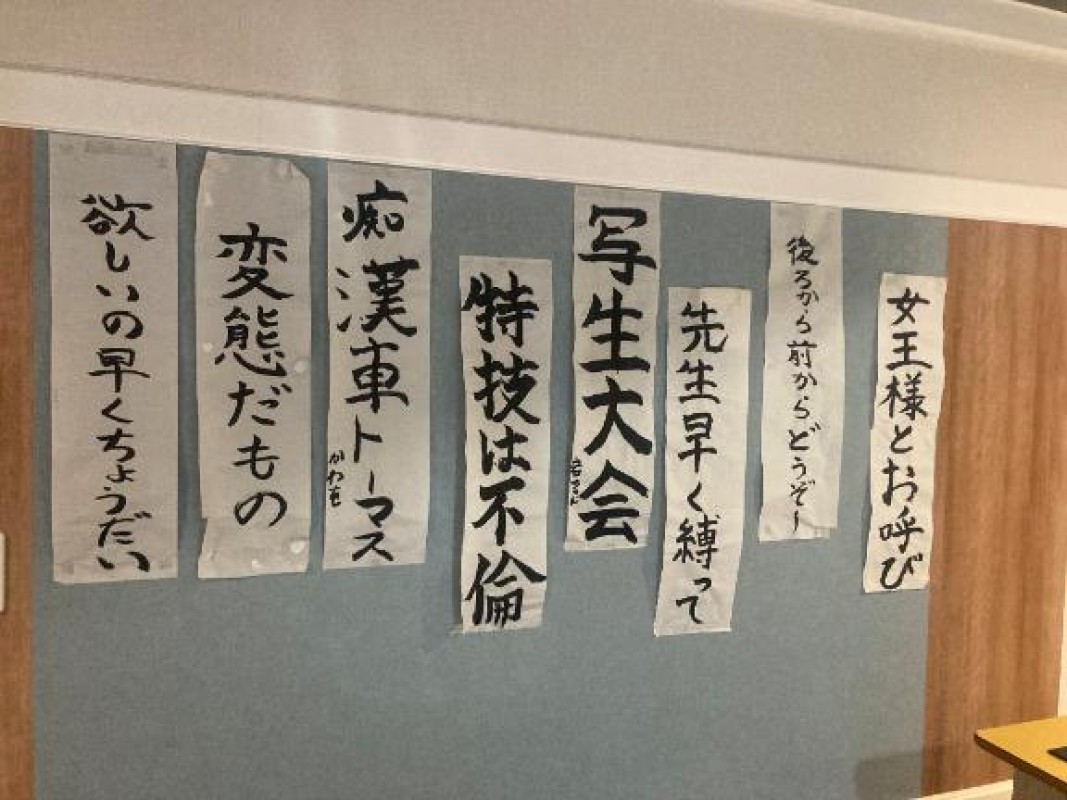 女王様とお呼び
後ろから前からどうぞー
先生早く縛って
写生大会
特技は不倫
痴漢車トーマス
変態だもの
欲しいの早くちょうだい